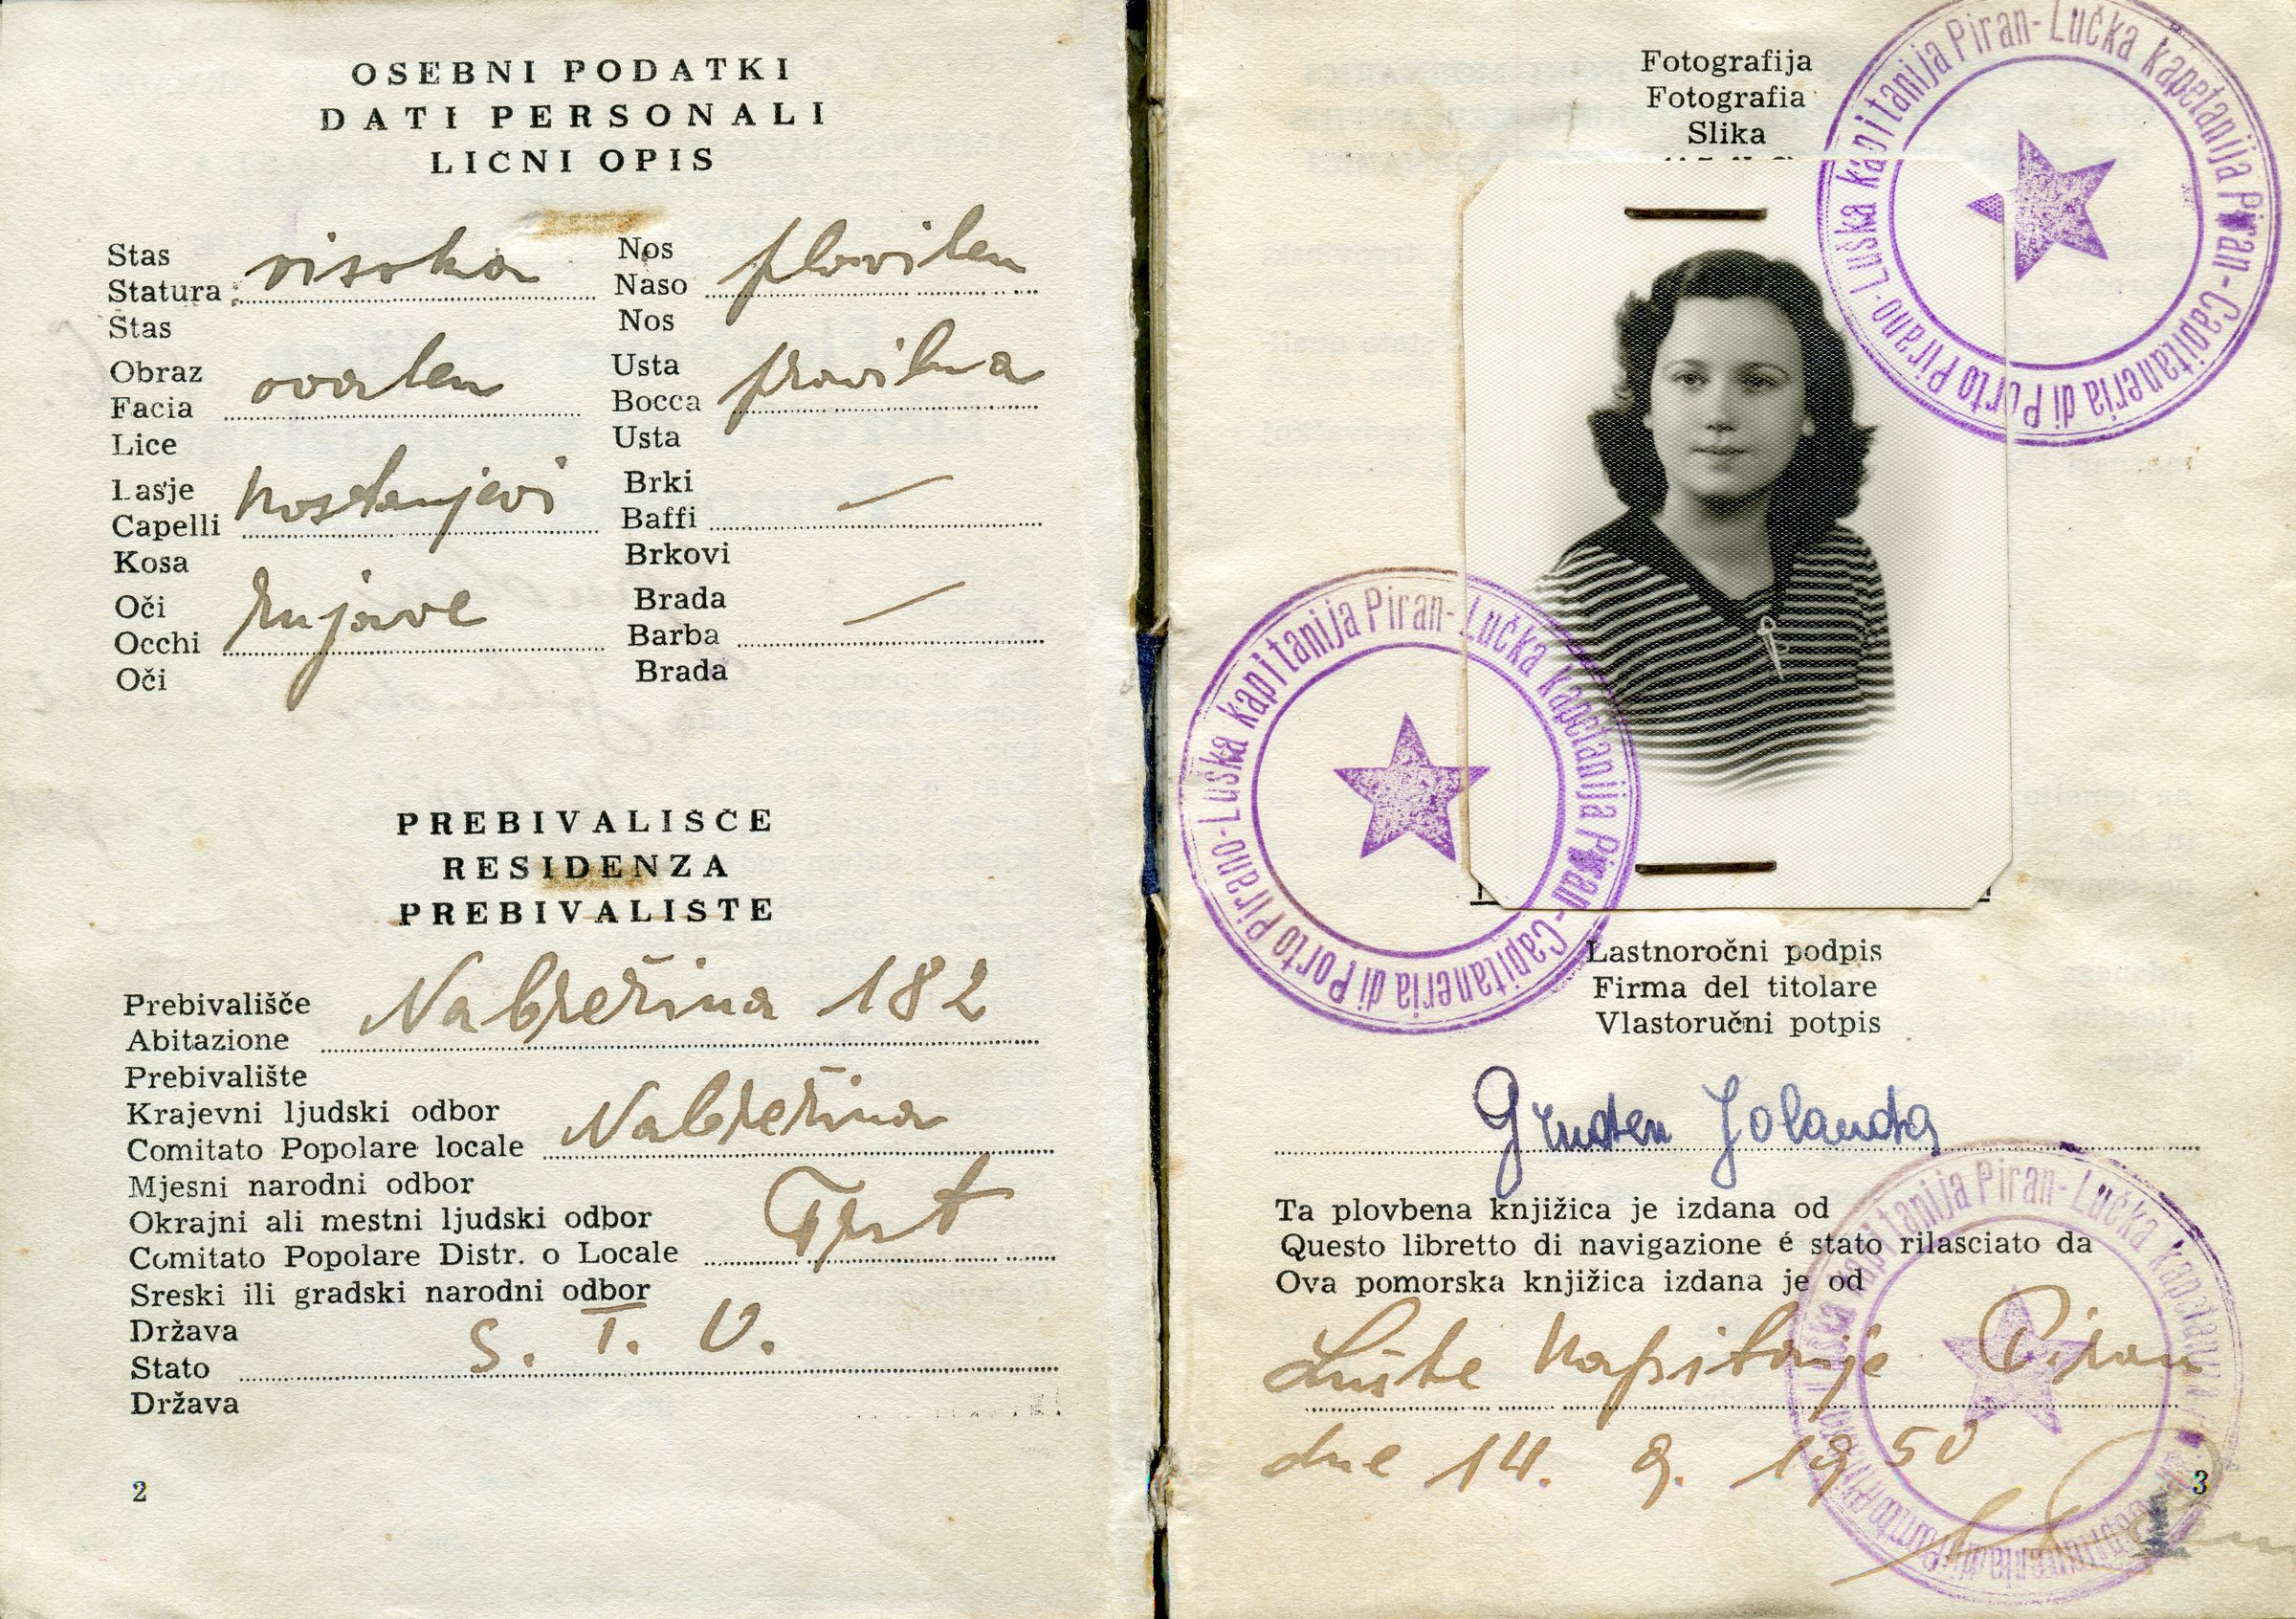 OSEBNI PODATKI
DATI PERSONALI
LIČNI OPIS
Stas
Statura visoka
Stas
Obraz
Facia ovalen
Lice
Lasje
Capelli kostanjevi
Kosa
Oči
Occhi rujave
Oči
Nos
Naso plavilen
Nos
Usta
Bocca pravilna
Usta
Brki
Baffi —
Brkovi
Brada
Barba —
Brada
PREBIVALIŠČE
RESIDENZA
PREBIVALIŠTE
Prebivališče
Abitazione Nabrežina 182
Prebivalište
Krajevni ljudski odbor
Comitato Popolare locale Nabrežina
Mjesni narodni odbor
Okrajni ali mestni ljudski odbor
Comitato Popolare Distr. o Locale Trst
Sreski ili gradski narodni odbor
Država
Stato S. T. O.
Država
2
Fotografija
Fotografia
Slika
Luška kapitanija Piran - Lučka kapetanija Piran - Capitaneria di Porto Pirano
Luška kapitanija Piran - Lučka kapetanija Piran - Capitaneria di Porto Pirano
Lastnoročni podpis
Firma del titolare
Vlastoručni potpis
Gruden Jolanda
Ta plovbena knjižica je izdana od
Questo libretto di navigazione é stato rilasciato da
Ova pomorska knjižica izdana je od
Luške kapitanije Piran
dne 14. 9. 1950
Luška kapitanija Piran - Lučka kapetanija Piran - Capitaneria di Porto Pirano
3